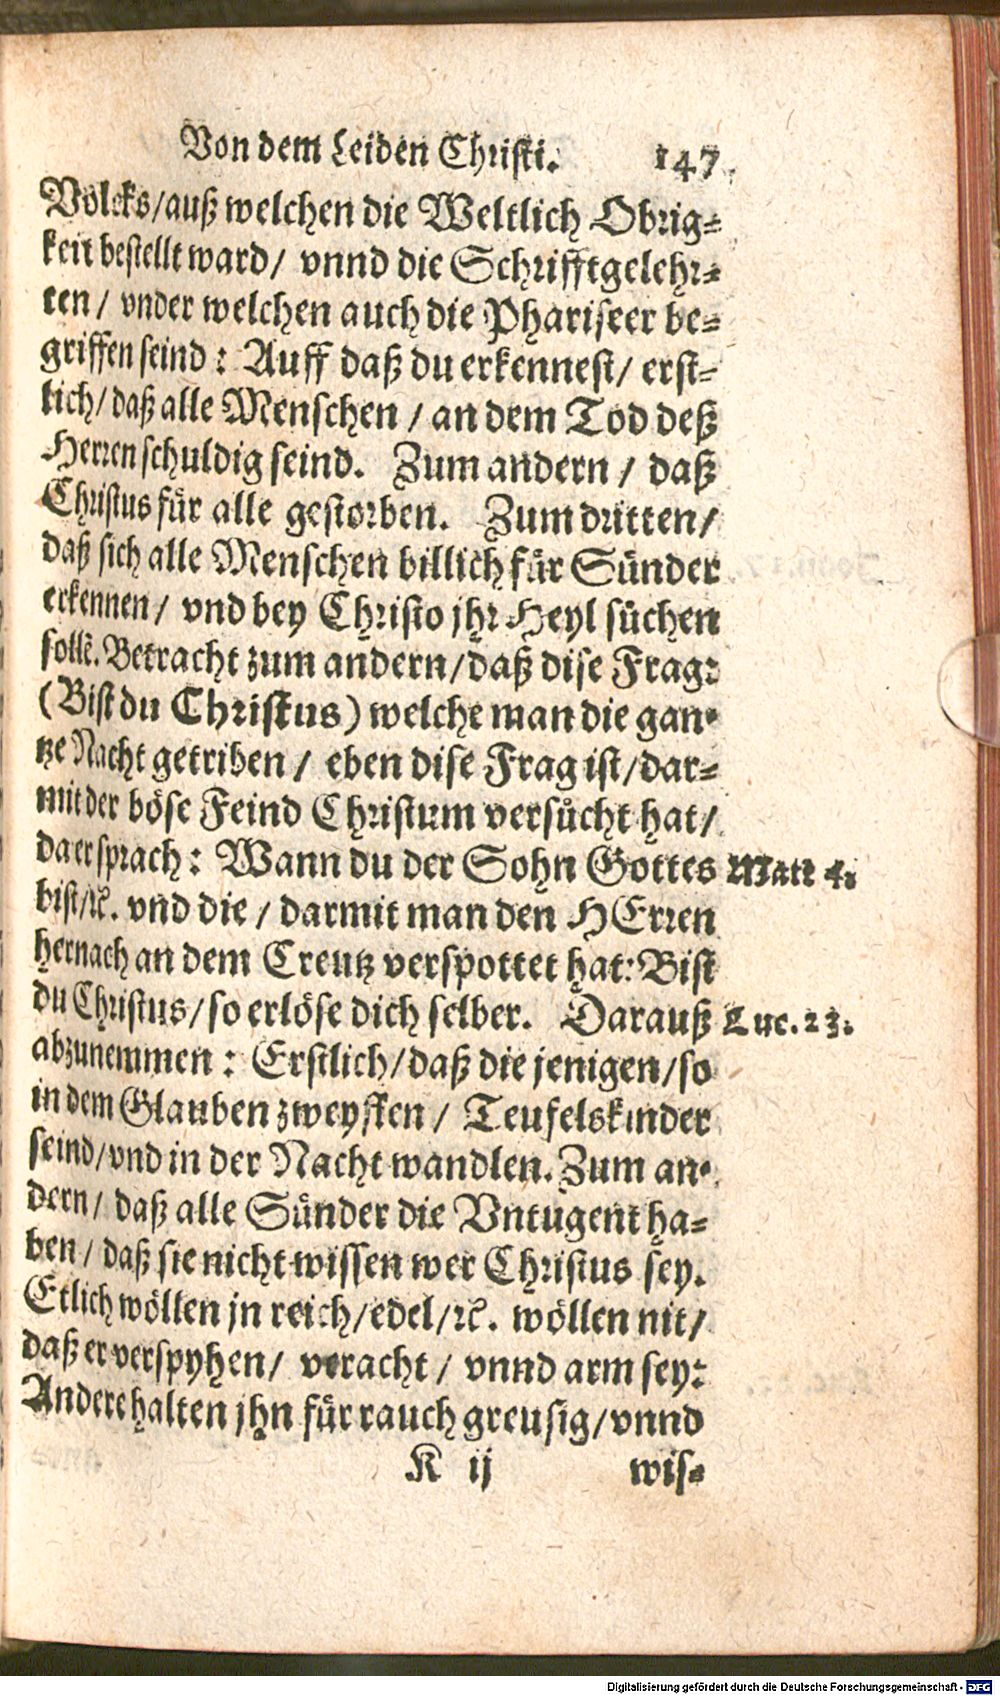 Von dem Leiden Christi. 147
Volcks/auß welchen die Weltlich Obrig-
keit bestellt ward/ vnnd die Schrifftgelehr-
ten/ vnder welchen auch die Phariseer be-
griffen seind: Auff daß du erkennest/ erst-
lich/ daß alle Menschen/ an dem Tod deß
Herren schuldig seind. Zum andern/ daß
Christus für alle gestorben. Zum dritten/
daß sich alle Menschen billich für Sünder
erkennen/ vnd bey Christo jhr Heyl sůchen
sollẽ. Betracht zum andern/daß dise Frag:
(Bist du Christus) welche man die gan-
tze Nacht getriben/ eben dise Frag ist/dar-
mit der böse Feind Christum versůcht hat/
da er sprach: Wann du der Sohn Gottes Matt 4.
bist/ꝛc. vnd die/ darmit man den HErren
hernach an dem Creutz verspottet hat: Bist
du Christus/so erlöse dich selber. Darauß Luc. 23.
abzunemmen: Erstlich/daß die jenigen/so
in dem Glauben zweyflen/ Teufelskinder
seind/vnd in der Nacht wandlen. Zum an-
dern/ daß alle Sünder die Vntugent ha-
ben/ daß sie nicht wissen wer Christus sey.
Etlich wöllen jn reich/edel/ꝛc. wöllen nit/
daß er verspyhen/ veracht/ vnnd arm sey:
Andere halten jhn für rauch greusig/vnnd
K ij wis-
Digitalisierung gefördert durch die Deutsche Forschungsgemeinschaft - DFG